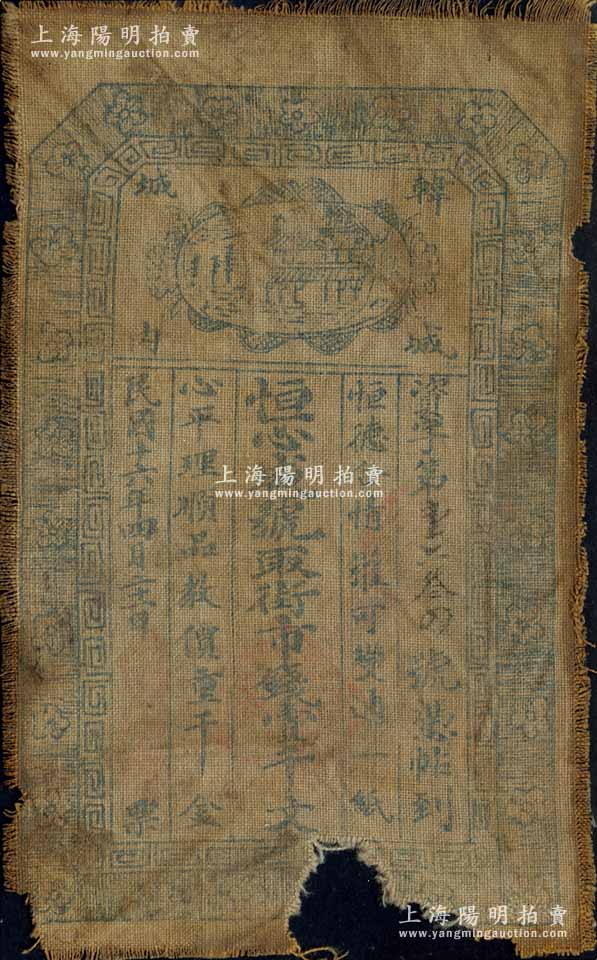 上海陽明拍賣
www.yangmingauction.com
韓城
城内
第壹叁四號憑帖到
恒德情雅可雙通一紙
恒心號取街市錢壹千文
心平理順品教價重千金
民國十六年四月廿一日票
上海陽明拍賣
www.yangmingauction.com
上海陽明拍賣
www.yangmingauction.com